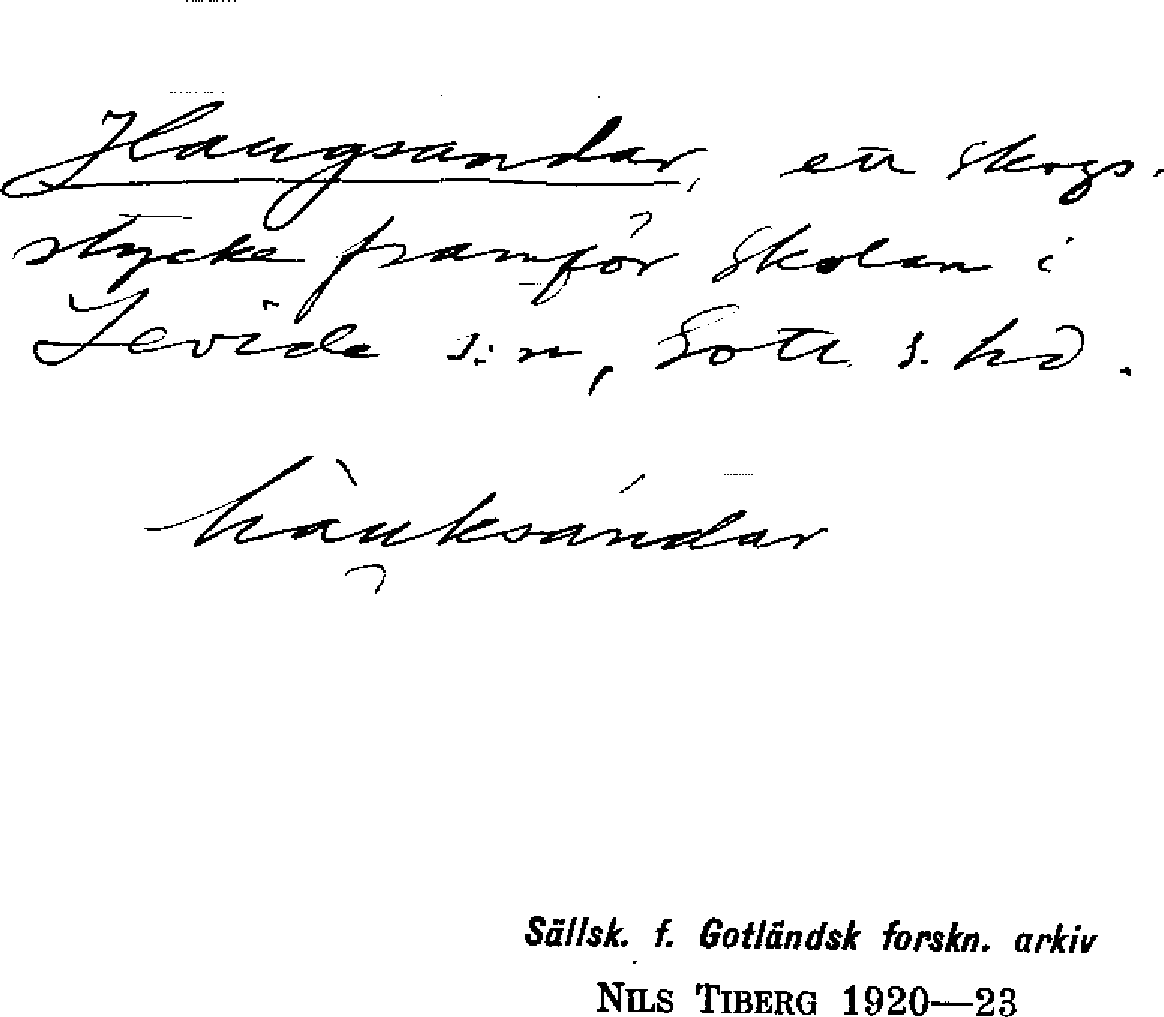 Haugsandar, ett skogs-
stycke framför skolan i
Levide s:n, Gotl. s. hd.
hàuksándar
Sällsk. f. Gotländsk forskn. arkiv
NILS TIBERG 1920—23